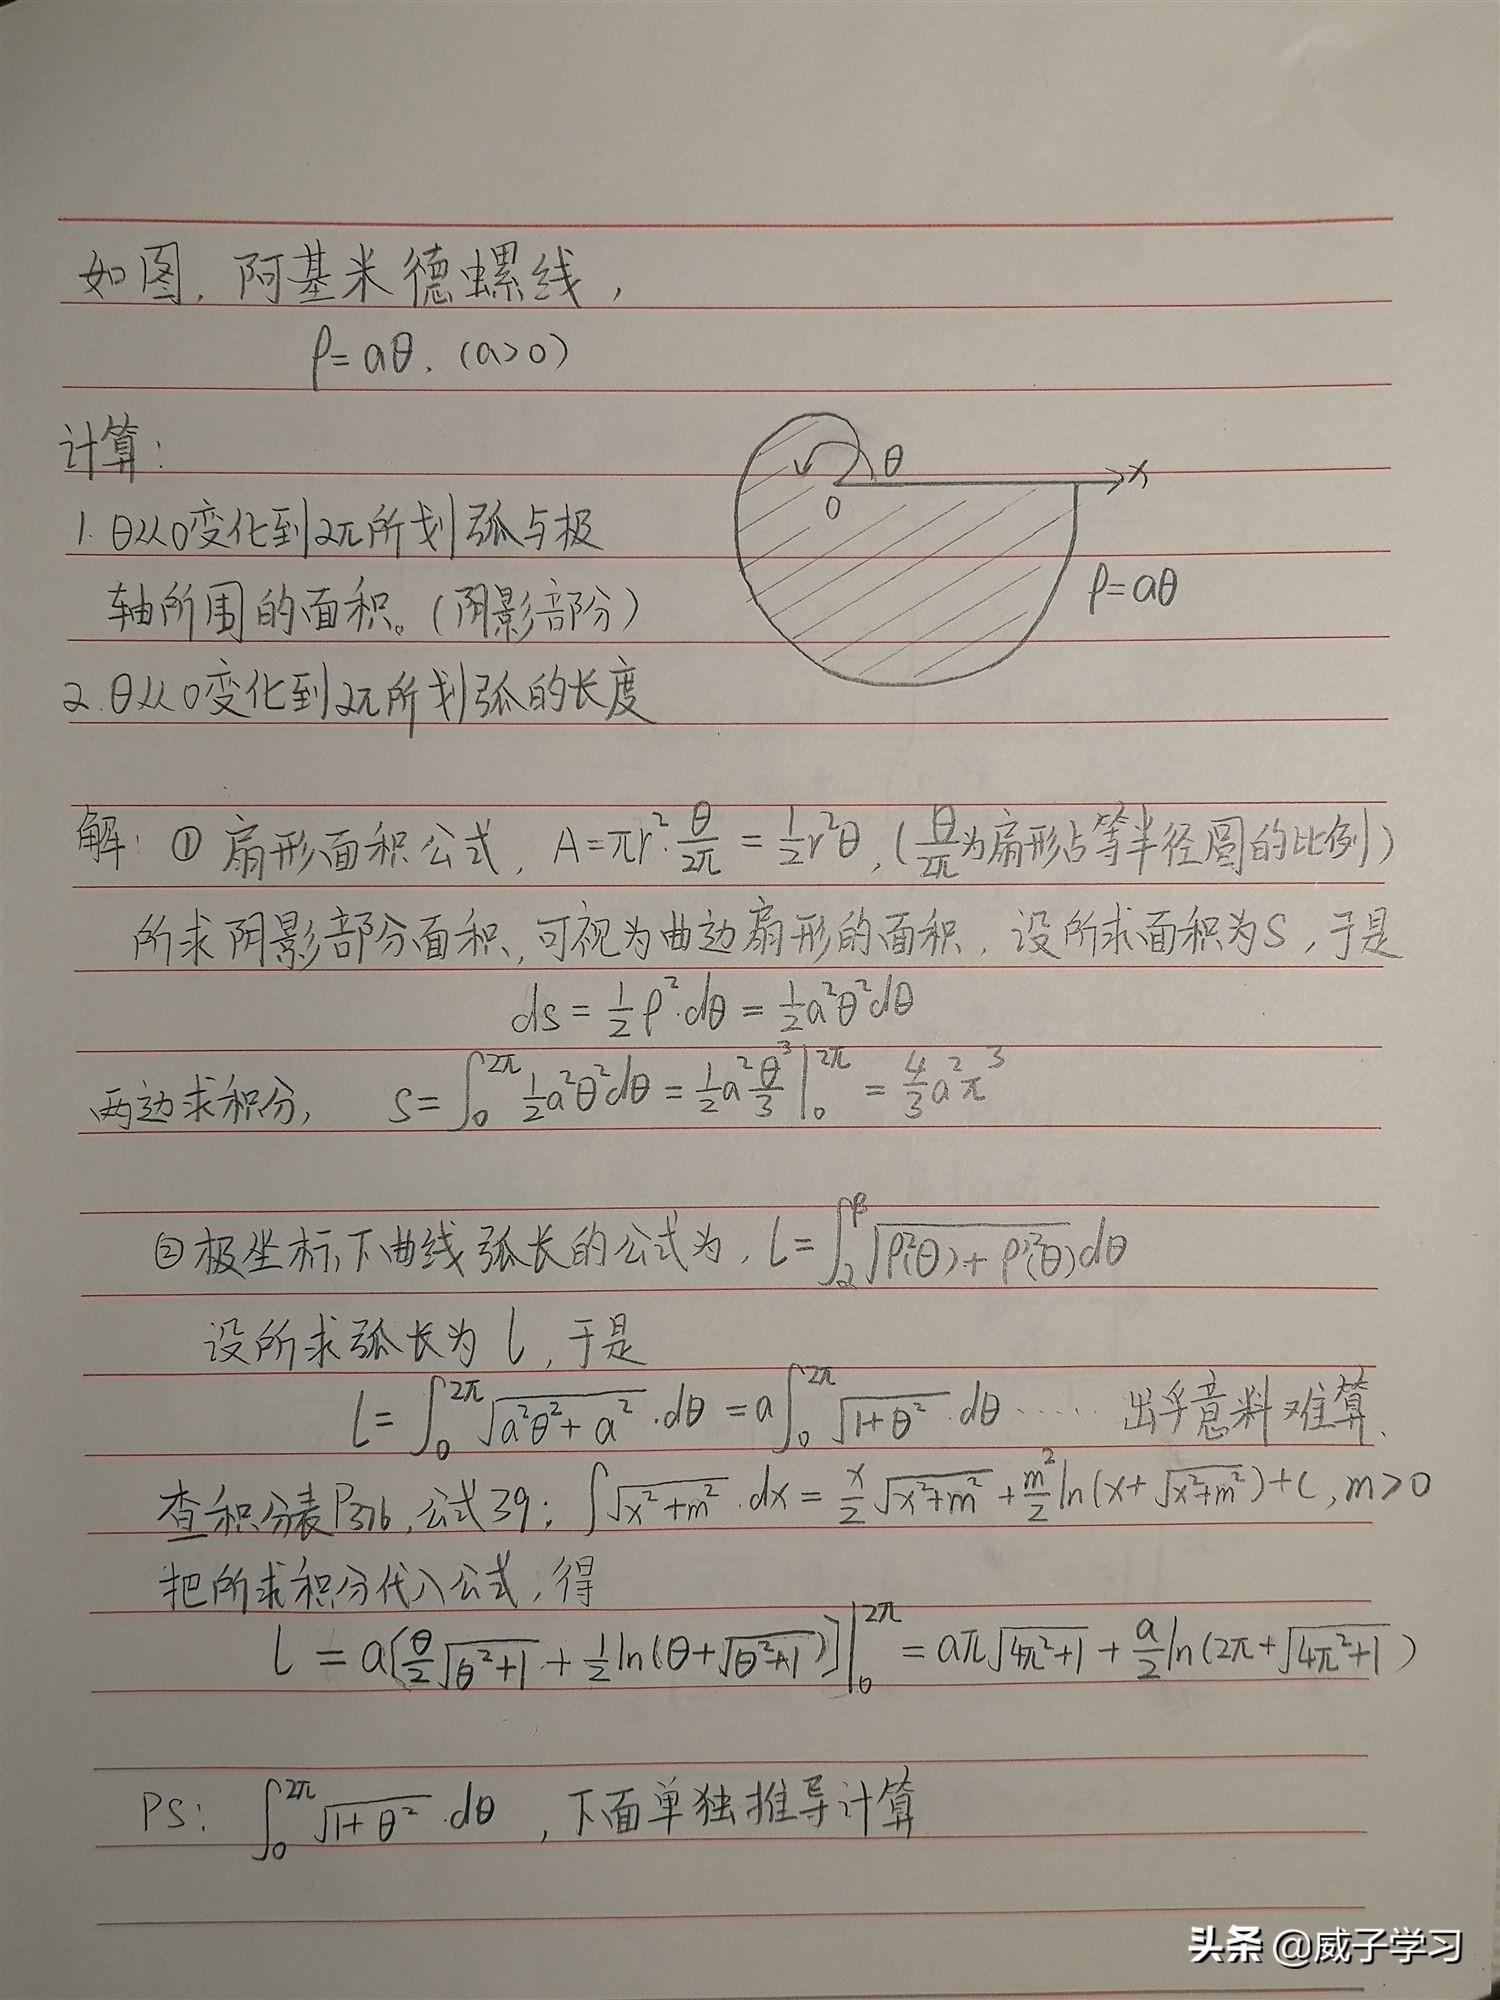 如图，阿基米德螺线，
ρ=aθ.（a>0）
计算：
θ
x
O
ρ=aθ
1. θ从0变化到2π所划弧与极
轴所围的面积。（阴影部分）
2. θ从0变化到2π所划弧的长度
解：① 扇形面积公式，A=πr²·θ/2π = 1/2 r²θ，（θ/2π为扇形占等半径圆的比例）
所求阴影部分面积，可视为曲边扇形的面积，设所求面积为S，于是
ds = 1/2 ρ²·dθ = 1/2 a²θ²dθ
两边求积分， S = ∫₀^2π 1/2 a²θ²dθ = 1/2 a² θ³/3 |₀^2π = 4/3 a²π³
②极坐标下曲线弧长的公式为，l = ∫_α^β √(ρ²(θ)+ρ'²(θ)) dθ
设所求弧长为l，于是
l = ∫₀^2π √(a²θ²+a²)·dθ = a∫₀^2π √(1+θ²)·dθ ······ 出乎意料难算.
查积分表P376，公式39：∫√(x²+m²)·dx = x/2 √(x²+m²) + m²/2 ln(x+√(x²+m²))+C, m>0
把所求积分代入公式，得
l = a[θ/2 √(θ²+1) + 1/2 ln(θ+√(θ²+1))]|₀^2π = aπ√(4π²+1) + a/2 ln(2π+√(4π²+1))
PS： ∫₀^2π √(1+θ²)·dθ ，下面单独推导计算
头条 @威子学习